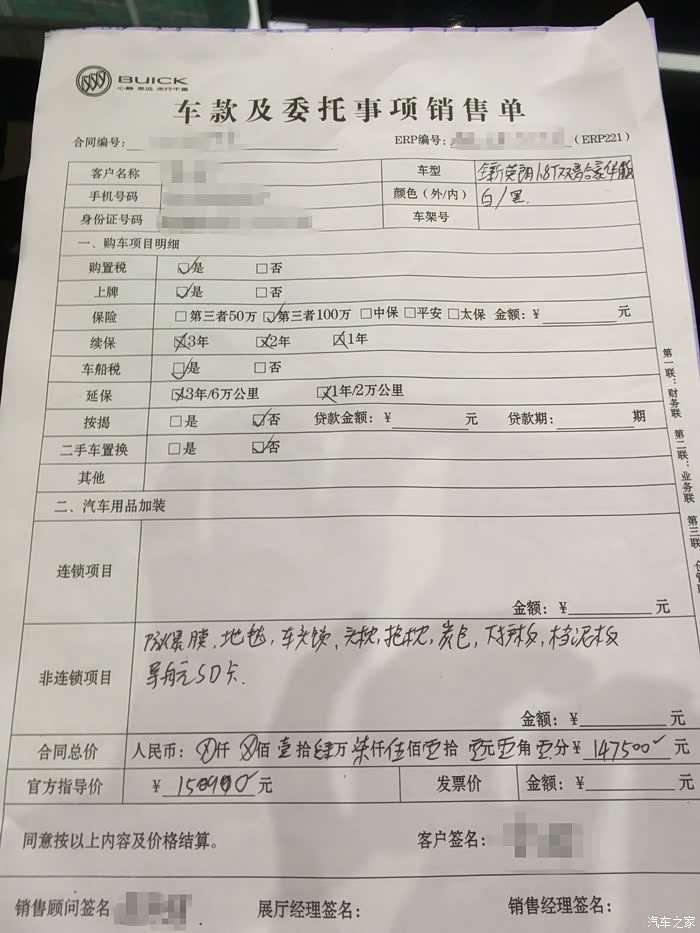 BUICK
心静 思远 志行千里
车款及委托事项销售单
合同编号： ERP编号： （ERP221）
客户名称 车型 全新英朗 1.8T双离合豪华版
手机号码 颜色（外/内） 白/黑
身份证号码 车架号
一、购车项目明细
购置税 是 否
上牌 是 否
保险 第三者50万 第三者100万 中保 平安 太保 金额：￥ 元
续保 3年 2年 1年
车船税 是 否
延保 3年/6万公里 1年/2万公里
按揭 是 否 贷款金额：￥ 元 贷款期： 期
二手车置换 是 否
其他
二、汽车用品加装
连锁项目
金额：￥ 元
防爆膜，地毯，车头锁，头枕，抱枕，炭包，下护板，档泥板
非连锁项目
导航SD卡.
金额：￥ 元
合同总价 人民币： 仟 佰 壹拾肆万柒仟伍佰 拾 元 角 分￥ 147500 元
官方指导价 ￥ 元 发票价 金额：￥ 元
同意按以上内容及价格结算。 客户签名：
销售顾问签名 展厅经理签名： 销售经理签名：
第一联：财务联 第二联：业务联 第三联
汽车之家